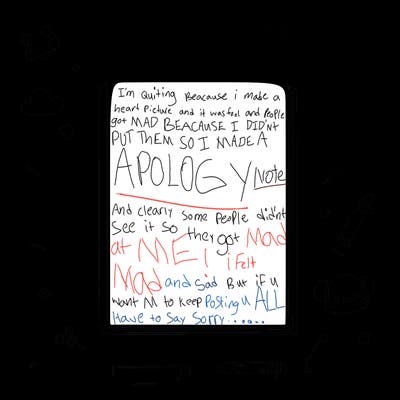 I'm Quiting Beacause i made a
heart Picture and it was fool and People
got MAD BEACAUSE I DIDN't
PUT THEM SO I MADE A
APOLOGY Note
And clearly some People didn't
See it so they got Mad
at ME! i Felt
Mad and Sad But if u
want M to keep Posting u ALL
Have to Say Sorry......